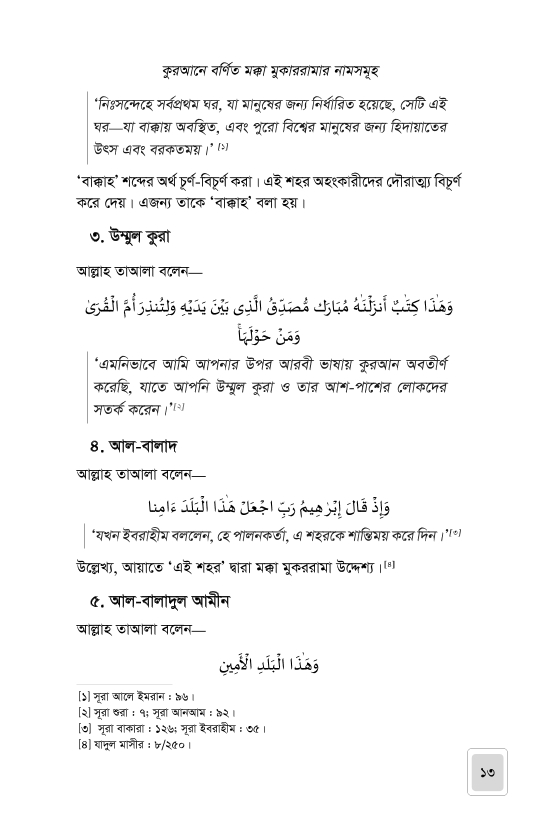 কুরআনে বর্ণিত মক্কা মুকাররামার নামসমূহ
‘নিঃসন্দেহে সর্বপ্রথম ঘর, যা মানুষের জন্য নির্ধারিত হয়েছে, সেটি এই
ঘর—যা বাক্কায় অবস্থিত, এবং পুরো বিশ্বের মানুষের জন্য হিদায়াতের
উৎস এবং বরকতময়।’ [১]
‘বাক্কাহ’ শব্দের অর্থ চূর্ণ-বিচূর্ণ করা। এই শহর অহংকারীদের দৌরাত্ম্য বিচূর্ণ
করে দেয়। এজন্য তাকে ‘বাক্কাহ’ বলা হয়।
৩. উম্মুল কুরা
আল্লাহ তাআলা বলেন—
وَهَٰذَا كِتَٰبٌ أَنزَلْنَٰهُ مُبَارَك مُّصَدِّقُ الَّذِى بَيْنَ يَدَيْهِ وَلِتُنذِرَ أُمَّ الْقُرَىٰ
وَمَنْ حَوْلَهَاۚ
‘এমনিভাবে আমি আপনার উপর আরবী ভাষায় কুরআন অবতীর্ণ
করেছি, যাতে আপনি উম্মুল কুরা ও তার আশ-পাশের লোকদের
সতর্ক করেন।’[২]
৪. আল-বালাদ
আল্লাহ তাআলা বলেন—
وَإِذْ قَالَ إِبْرَٰهِيمُ رَبِّ اجْعَلْ هَٰذَا الْبَلَدَ ءَامِنا
‘যখন ইবরাহীম বললেন, হে পালনকর্তা, এ শহরকে শান্তিময় করে দিন।’[৩]
উল্লেখ্য, আয়াতে ‘এই শহর’ দ্বারা মক্কা মুকররামা উদ্দেশ্য।[৪]
৫. আল-বালাদুল আমীন
আল্লাহ তাআলা বলেন—
وَهَٰذَا الْبَلَدِ الْأَمِينِ
[১] সূরা আলে ইমরান : ৯৬।
[২] সূরা শুরা : ৭; সূরা আনআম : ৯২।
[৩] সূরা বাকারা : ১২৬; সূরা ইবরাহীম : ৩৫।
[৪] যাদুল মাসীর : ৮/২৫০।
১৩